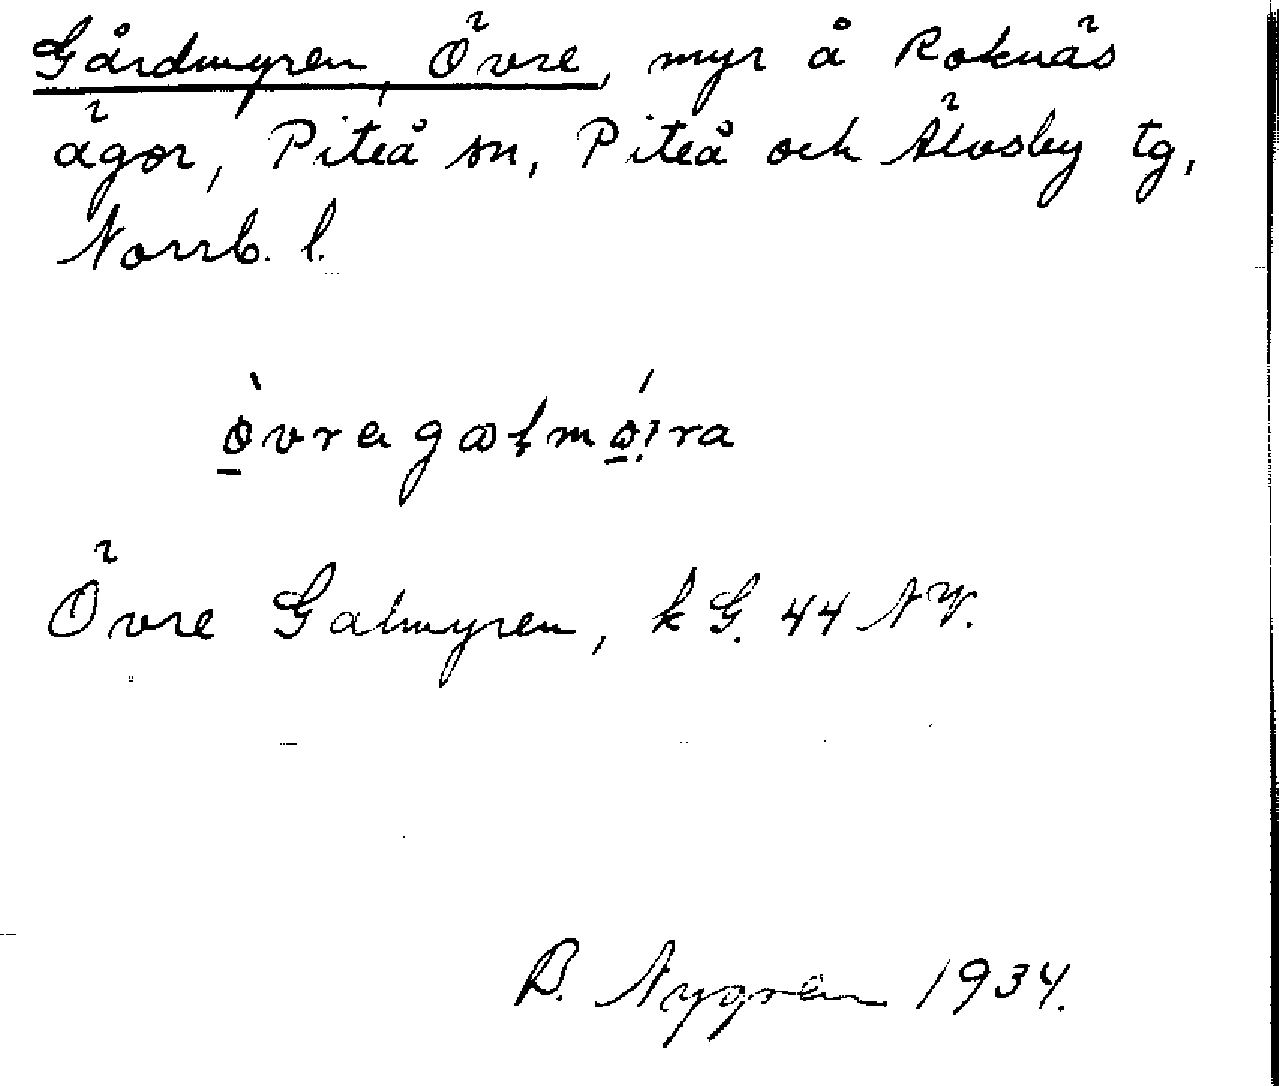 Gårdmyren, Övre, myr å Roknäs
ägor, Piteå sn, Piteå och Älvsby tg,
Norrb. l.
Övre Galmyren, k G. 44 NV.
B. Nygren 1934.